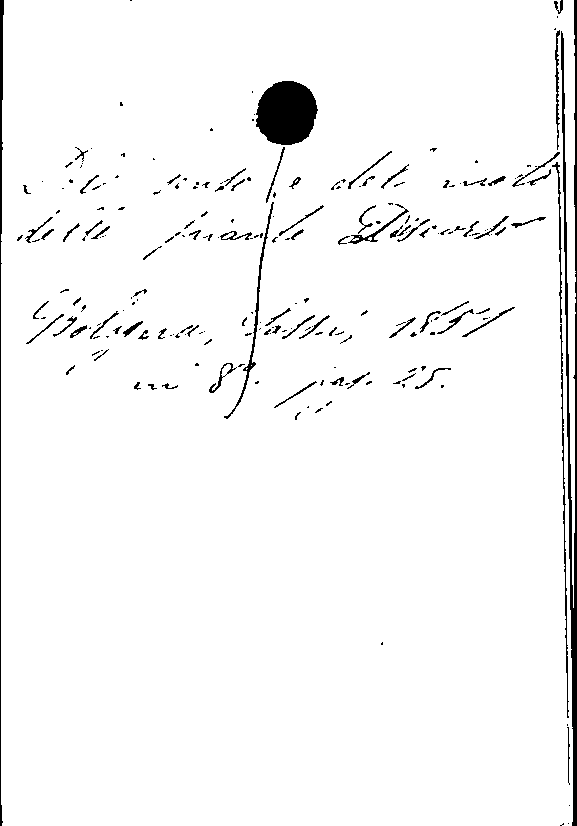 Del senso e del moto
delle piante Discorso
Bologna, Sassi, 1851
in 8º. pag. 25.